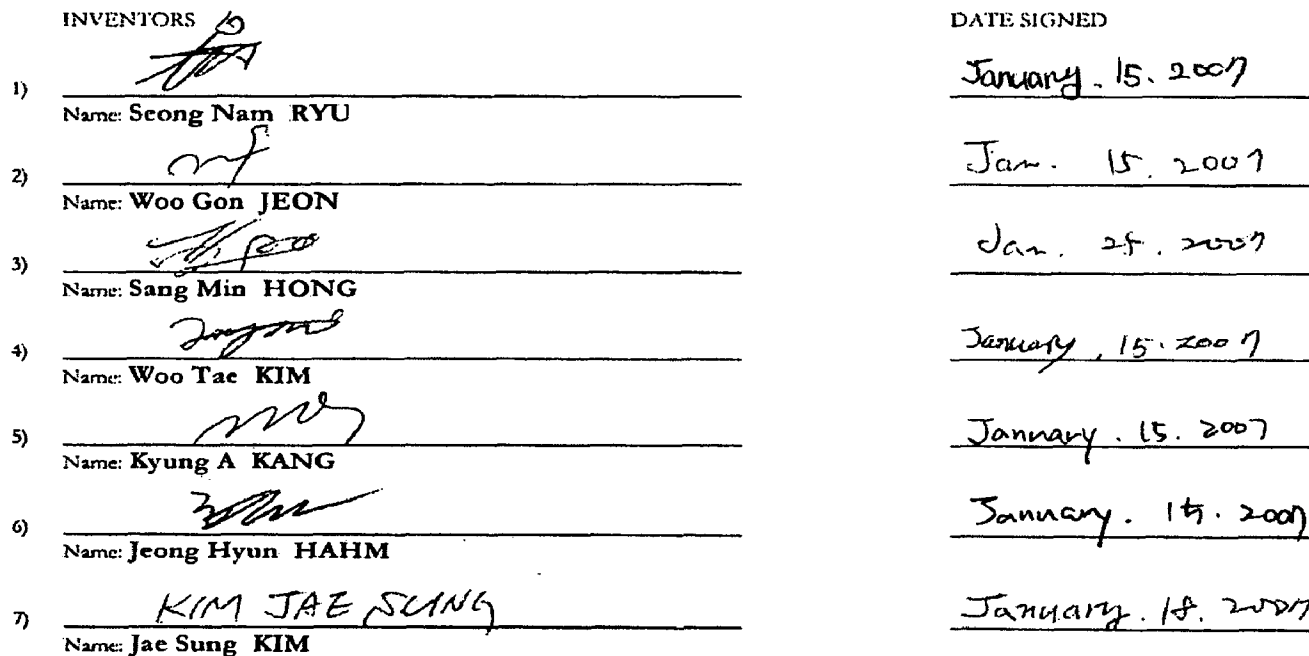 INVENTORS DATE SIGNED
1) January. 15. 2007
Name: Seong Nam RYU
2) Jan. 15. 2007
Name: Woo Gon JEON
3) Jan. 25. 2007
Name: Sang Min HONG
4) January. 15. 2007
Name: Woo Tae KIM
5) January. 15. 2007
Name: Kyung A KANG
6) January. 15. 2007
Name: Jeong Hyun HAHM
7) KIM JAE SUNG January. 18. 2007
Name: Jae Sung KIM